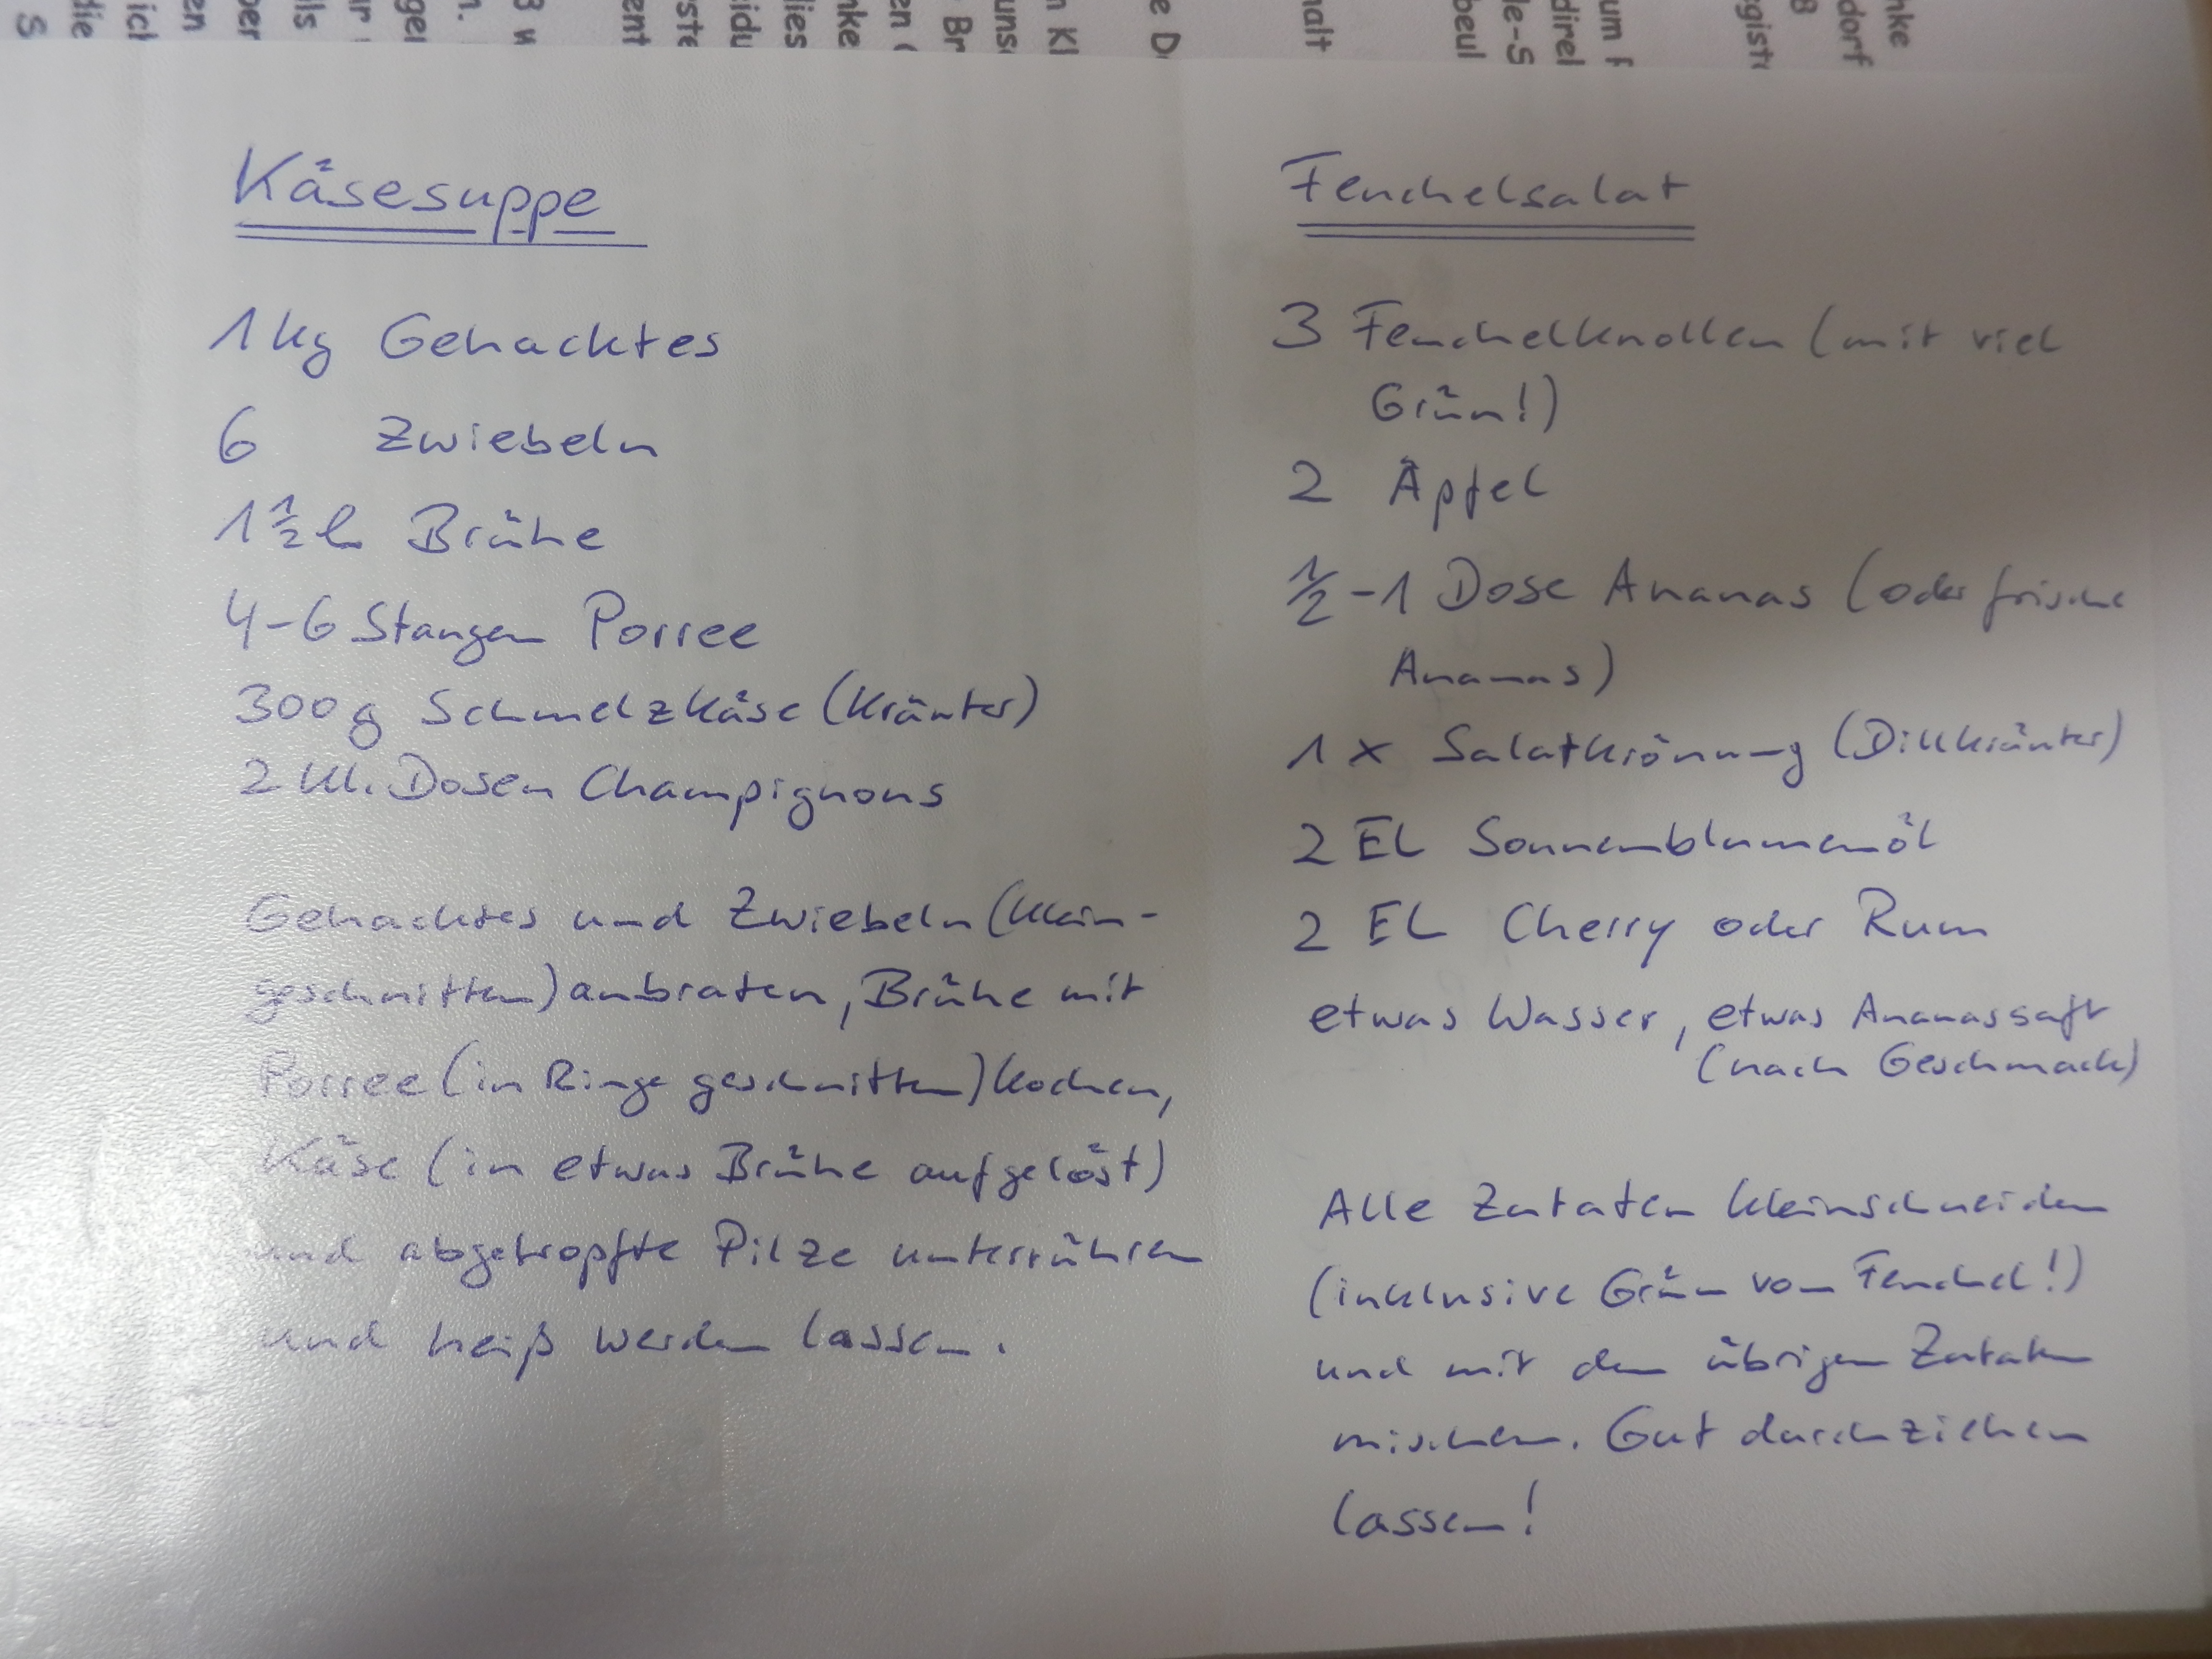 Käsesuppe
1kg Gehacktes
6 Zwiebeln
1 1/2 l Brühe
4-6 Stangen Porree
300g Schmelzkäse (Kräuter)
2 kl. Dosen Champignons
Gehacktes und Zwiebeln (klein-
geschnitten) anbraten, Brühe mit
Porree (in Ringe geschnitten) kochen,
Käse (in etwas Brühe aufgelöst)
und abgetropfte Pilze unterrühren
und heiß werden lassen.
Fenchelsalat
3 Fenchelknollen (mit viel
Grün!)
2 Äpfel
1/2-1 Dose Ananas (oder frische
Ananas)
1 x Salatkrönung (Dillkräuter)
2 EL Sonnenblumenöl
2 EL Cherry oder Rum
etwas Wasser, etwas Ananassaft
(nach Geschmack)
Alle Zutaten kleinschneiden
(inklusive Grün vom Fenchel!)
und mit den übrigen Zutaten
mischen. Gut durchziehen
lassen!